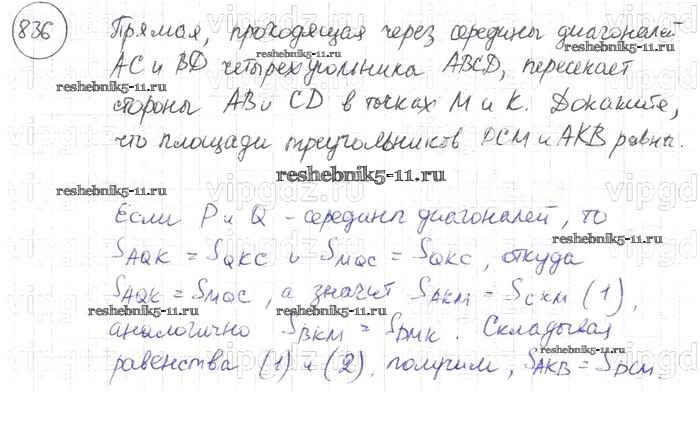 836
Прямая, проходящая через середины диагоналей
AC и BD четырехугольника ABCD, пересекает
стороны AB и CD в точках M и K. Докажите,
что площади треугольников DCM и AKB равны.
Если P и Q – середины диагоналей, то
S AQK = S QKC и S MQC = S QKC, откуда
S AQK = S MQC, а значит S AKM = S CKM (1),
аналогично S BKM = S DMK. Складывая
равенства (1) и (2), получим, S AKB = S DCM.
reshebnik5-11.ru
reshebnik5-11.ru
reshebnik5-11.ru
reshebnik5-11.ru
reshebnik5-11.ru
reshebnik5-11.ru
reshebnik5-11.ru
reshebnik5-11.ru
reshebnik5-11.ru
vipgdz.ru